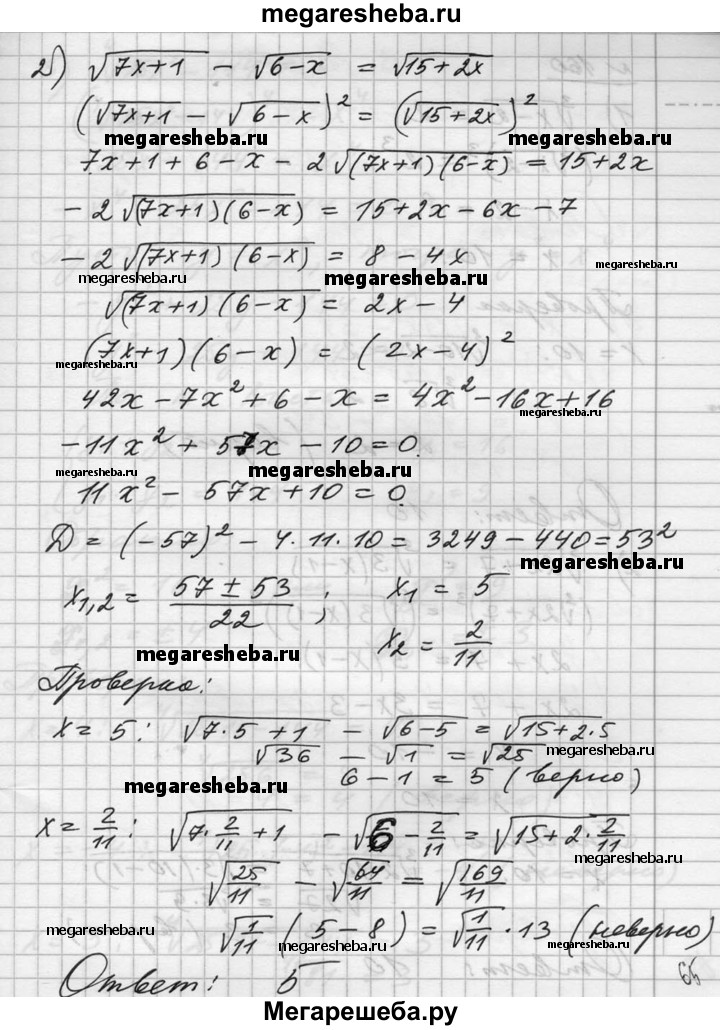 megaresheba.ru
2) √(7x+1) − √(6−x) = √(15+2x)
(√(7x+1) − √(6−x))² = (√(15+2x))²
megaresheba.ru megaresheba.ru
7x+1+6−x−2√((7x+1)(6−x)) = 15+2x
−2√((7x+1)(6−x)) = 15+2x−6x−7
−2√((7x+1)(6−x)) = 8−4x
megaresheba.ru megaresheba.ru megaresheba.ru
√((7x+1)(6−x)) = 2x−4
(7x+1)(6−x) = (2x−4)²
megaresheba.ru
42x−7x²+6−x = 4x²−16x+16
megaresheba.ru
−11x²+57x−10=0.
megaresheba.ru megaresheba.ru
11x²−57x+10=0
D = (−57)²−4·11·10 = 3249−440=53²
megaresheba.ru
x₁,₂ = (57±53)/22 ; x₁ = 5
megaresheba.ru
x₂ = 2/11
megaresheba.ru
Проверка:
x = 5: √(7·5+1) − √(6−5) = √(15+2·5)
√36 − √1 = √25
megaresheba.ru
6−1 = 5 (верно)
megaresheba.ru
x = 2/11: √(7·2/11+1) − √(6−2/11) = √(15+2·2/11)
megaresheba.ru
√(25/11) − √(64/11) = √(169/11)
megaresheba.ru
√(1/11) (5−8) = √(1/11)·13 (неверно)
megaresheba.ru megaresheba.ru
Ответ: 5
Мегарешеба.ру